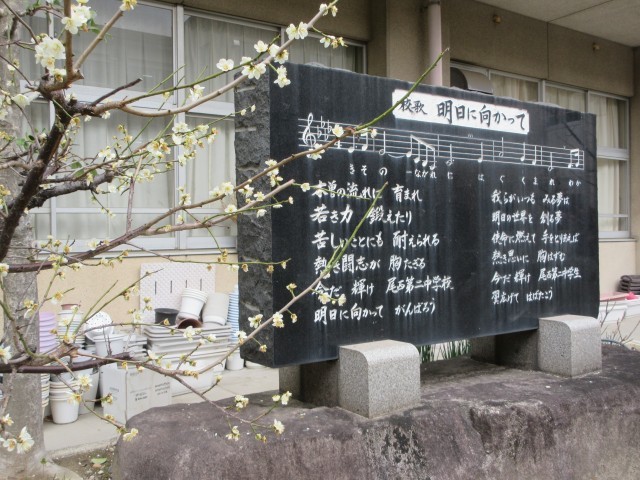 校歌 明日に向かって
きその ながれに は ぐ く ま れ わか
木曽の流れに 育まれ
若き力 鍛えたり
苦しいことにも 耐えられる
熱き闘志が 胸たぎる
今だ 輝け 尾西第二中学校
明日に向かって がんばろう
我らがいつも みる夢は
明日の世界を 創る夢
使命に燃えて 手をとりあえば
熱き思いに 胸はずむ
今だ 輝け 尾西第二中学生
翼広げて はばたこう